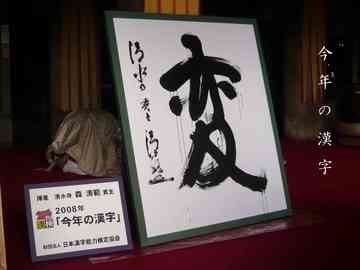 今年の漢字
変
清水
揮毫 清水寺 森 清範 貫主
2008年
「今年の漢字」
財団法人 日本漢字能力検定協会